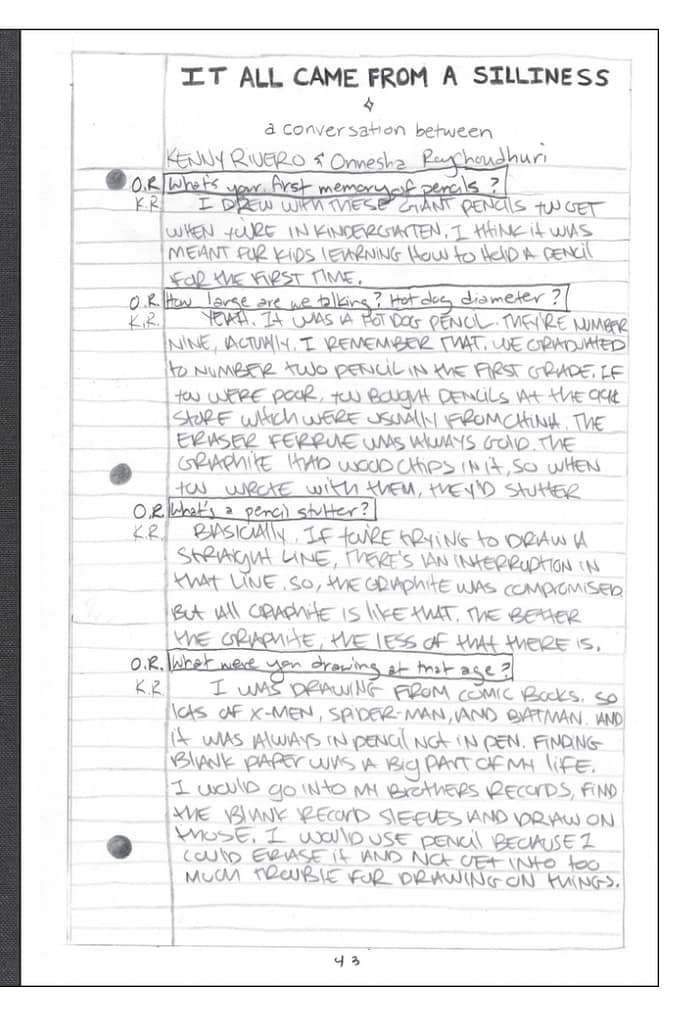 IT ALL CAME FROM A SILLINESS
a conversation between
KENNY RIVERO & Onnesha Roychoudhuri
O.R. What's your first memory of pencils?
K.R. I DREW WITH THESE GIANT PENCILS YOU GET
WHEN YOU'RE IN KINDERGARTEN, I THINK IT WAS
MEANT FOR KIDS LEARNING HOW TO HOLD A PENCIL
FOR THE FIRST TIME.
O.R. How large are we talking? Hot dog diameter?
K.R. YEAH. IT WAS A HOT DOG PENCIL. THEY'RE NUMBER
NINE, ACTUALLY. I REMEMBER THAT. WE GRADUATED
TO NUMBER TWO PENCIL IN THE FIRST GRADE. IF
YOU WERE POOR, YOU BOUGHT PENCILS AT THE 99¢
STORE WHICH WERE USUALLY FROM CHINA. THE
ERASER FERRULE WAS ALWAYS GOLD. THE
GRAPHITE HAD WOOD CHIPS IN IT, SO WHEN
YOU WROTE WITH THEM, THEY'D STUTTER
O.R. What's a pencil stutter?
K.R. BASICALLY, IF YOU'RE TRYING TO DRAW A
STRAIGHT LINE, THERE'S AN INTERRUPTION IN
THAT LINE. SO, THE GRAPHITE WAS COMPROMISED.
BUT ALL GRAPHITE IS LIKE THAT. THE BETTER
THE GRAPHITE, THE LESS OF THAT THERE IS.
O.R. What were you drawing at that age?
K.R. I WAS DRAWING FROM COMIC BOOKS. SO
LOTS OF X-MEN, SPIDER-MAN, AND BATMAN. AND
IT WAS ALWAYS IN PENCIL NOT IN PEN. FINDING
BLANK PAPER WAS A BIG PART OF MY LIFE.
I WOULD GO INTO MY BROTHERS RECORDS, FIND
THE BLANK RECORD SLEEVES AND DRAW ON
THOSE. I WOULD USE PENCIL BECAUSE I
COULD ERASE IT AND NOT GET INTO TOO
MUCH TROUBLE FOR DRAWING ON THINGS.
43